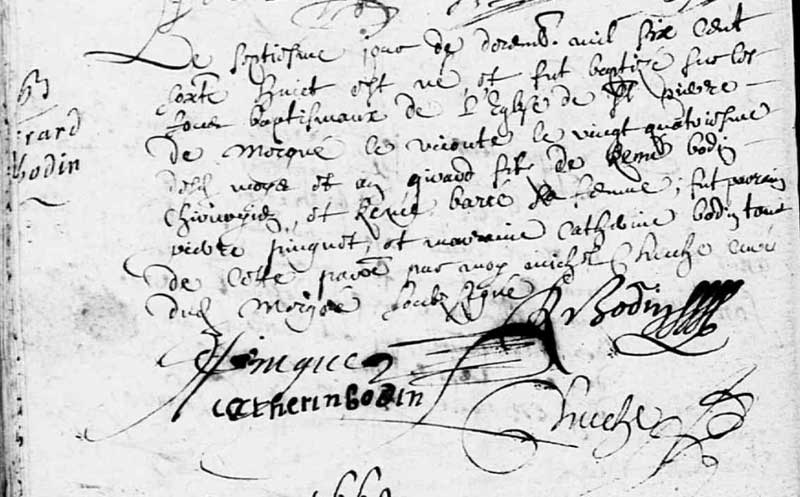 Le septiesme jour de decemb. mil six cent
soixte huict est né et fut baptizé sur les
fons baptismaux de l'Eglise de St pierre
de Morgné le viconte le vingt quatriesme
desd. moys et an girard fils de René bodin
Chirurgien, et Renée baree sa femme; fut parrain
pierre pinguet, et marraine Catherine bodin tous
de cette par. par moy michel Chuche curé
dud. Morgné soubz signé
girard
bodin
R Bodin
Pinguet
catherin bodin
Chuche